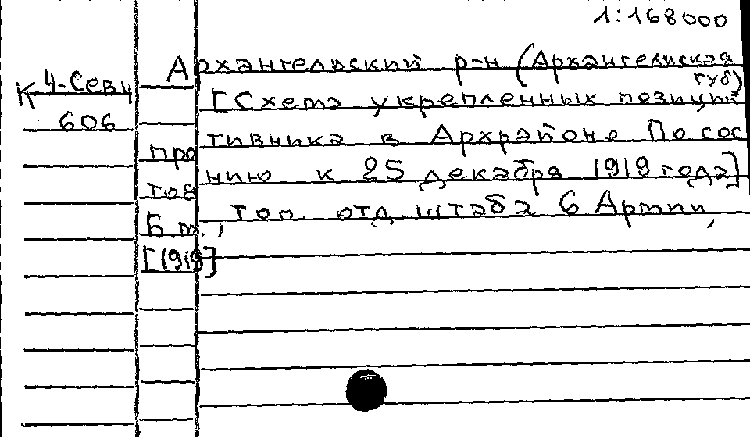 1:168000
К 4-Севн
606
Архангельский р-н (Архангельская
губ)
[Схема укрепленных позиций
противника в Архрайоне По сос
тоянию к 25 декабря 1919 года]
Б.м., топ. отд. штаба 6 Армии,
[1919]